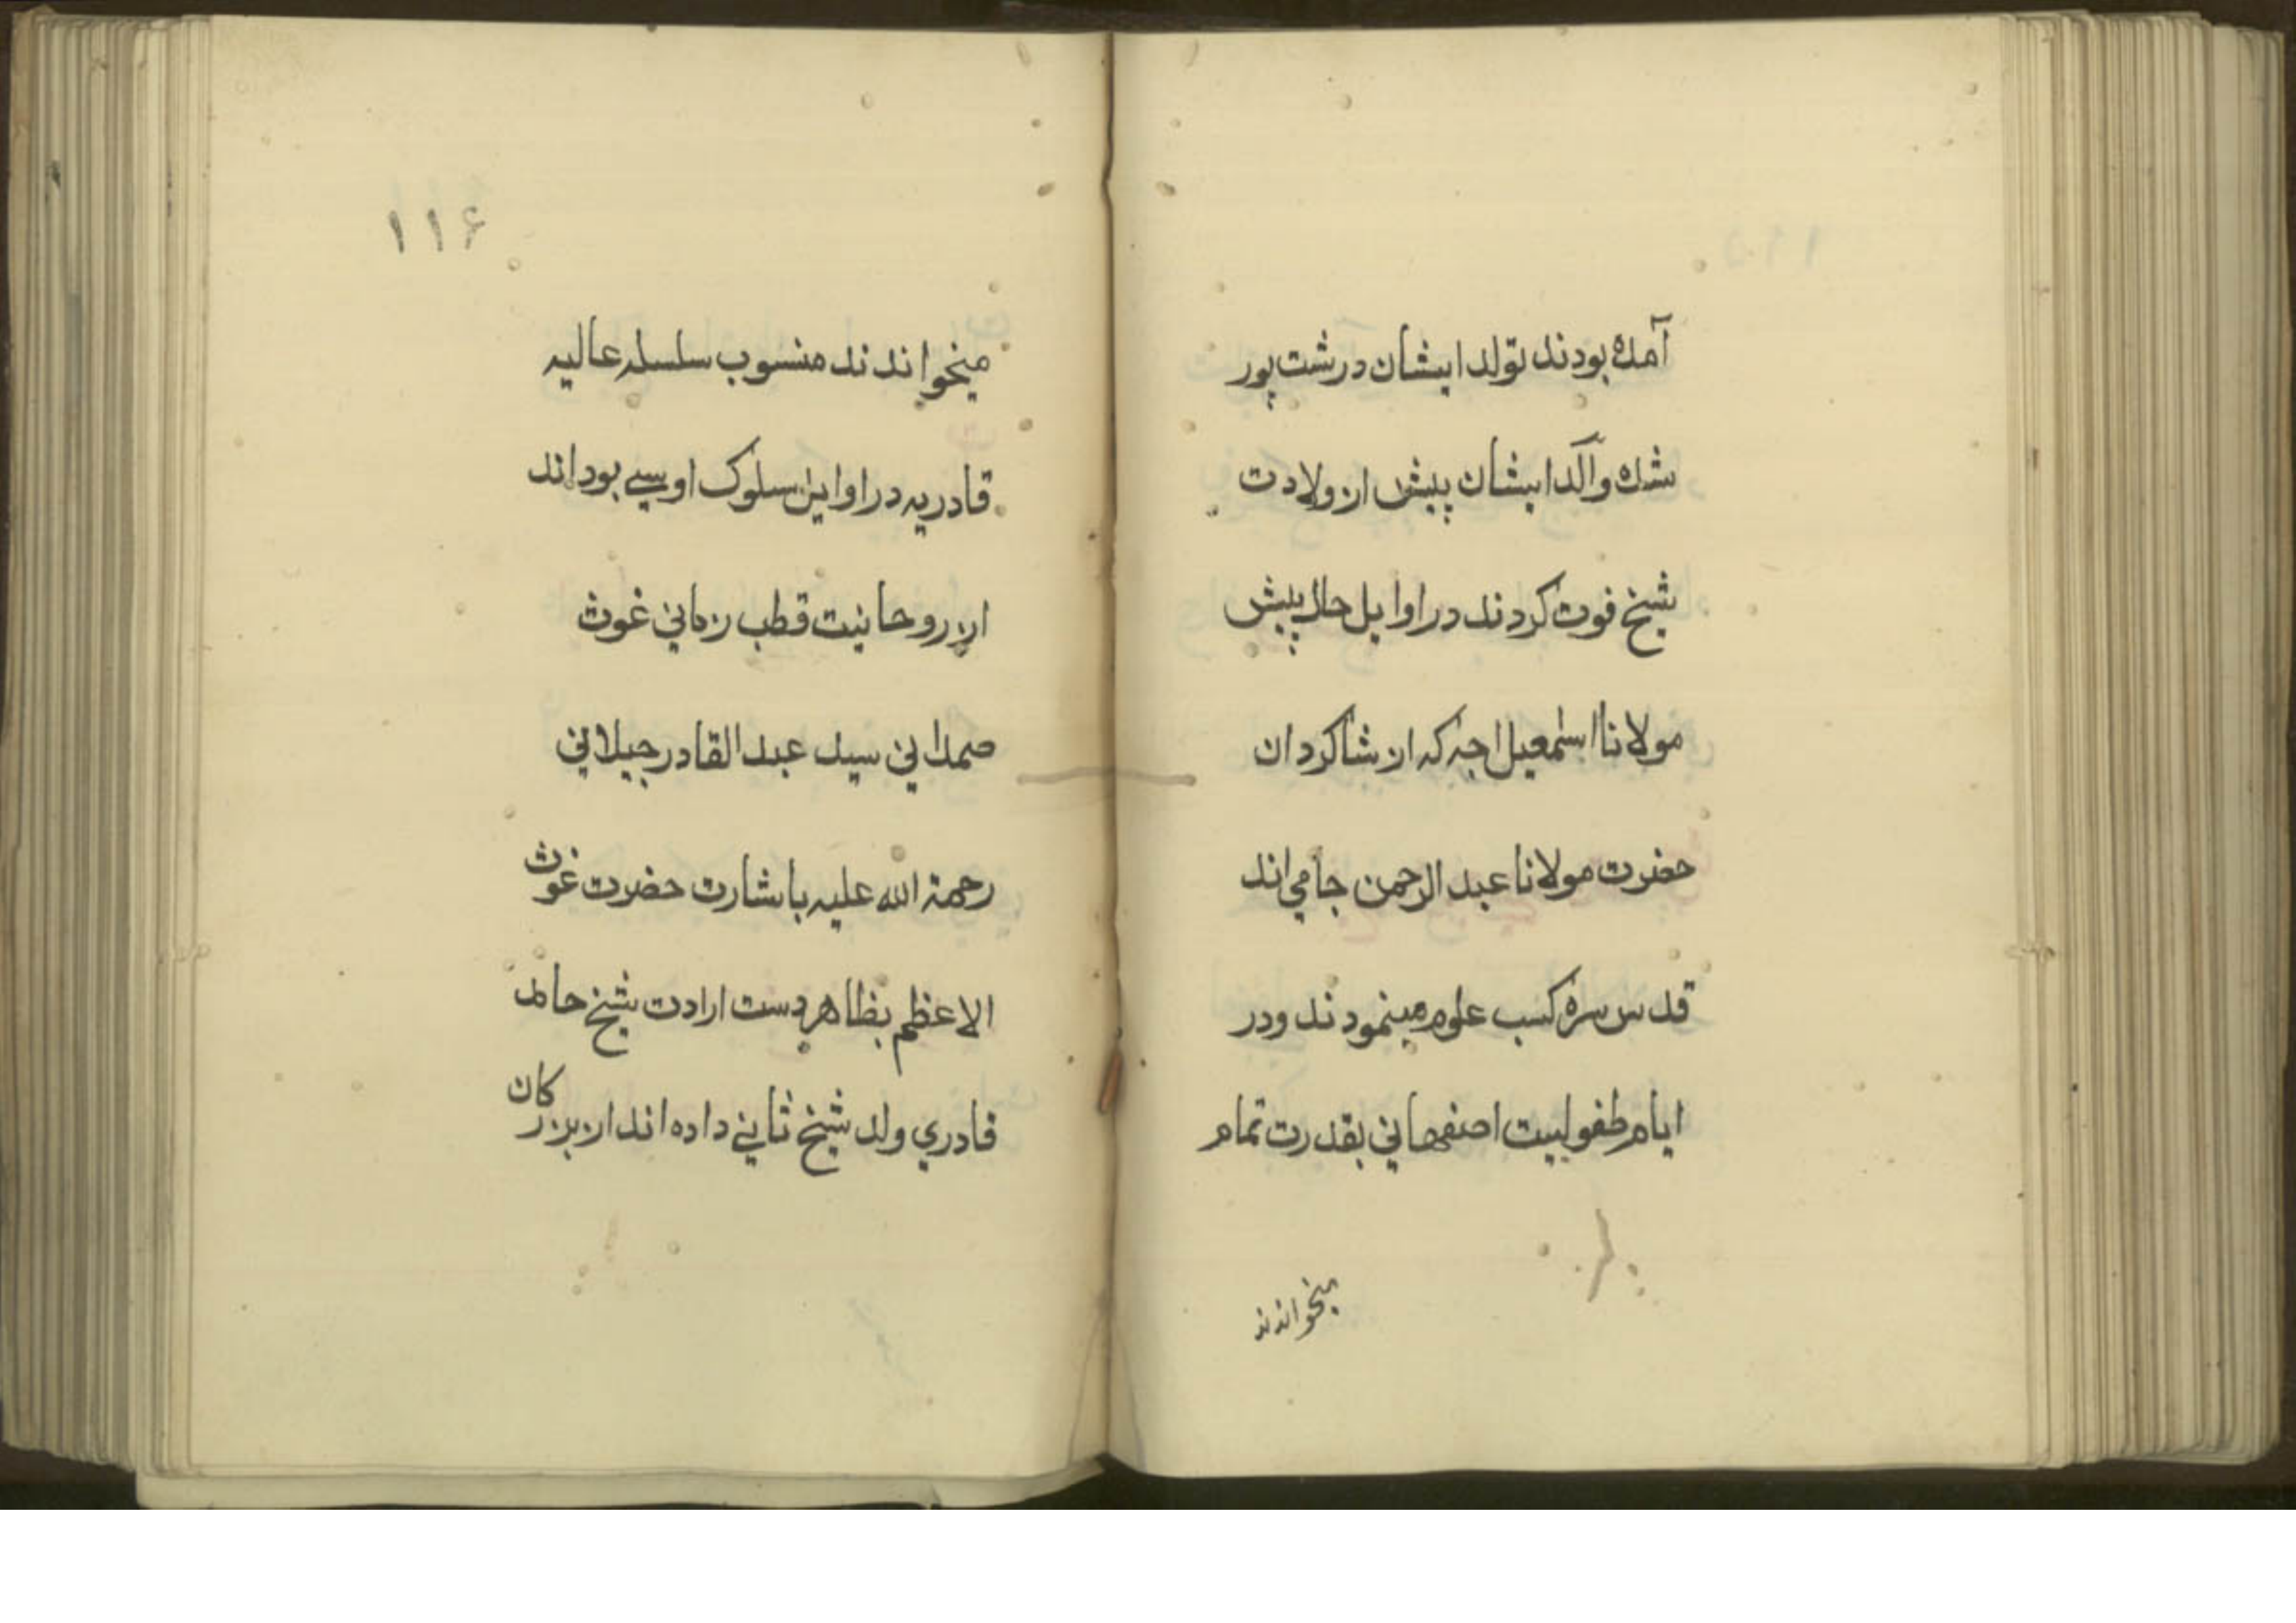 آمده بودند تولد ایشان در شت پور
شده والد ایشان پیش از ولادت
شیخ فوت کردند در اوایل حال پیش
مولانا اسمعیل اچه که از شاکردان
حضرت مولانا عبد الرحمن جامی اند
قدس سره کسب علوم مینمودند و در
ایام طفولیت اصفهانی بقدرت تمام
میخواندند
۱۱۶
میخواندند منسوب سلسله عالیه
قادریه در اوایل سلوک اویسے بود اند
از روحانیت قطب زمانی غوث
صمدانی سید عبد القادر جیلانی
رحمة الله علیه باشارت حضرت غوث
الاعظم بظاهر دست ارادت شیخ حامد
قادری ولد شیخ ثانے داده اند از بزرکان